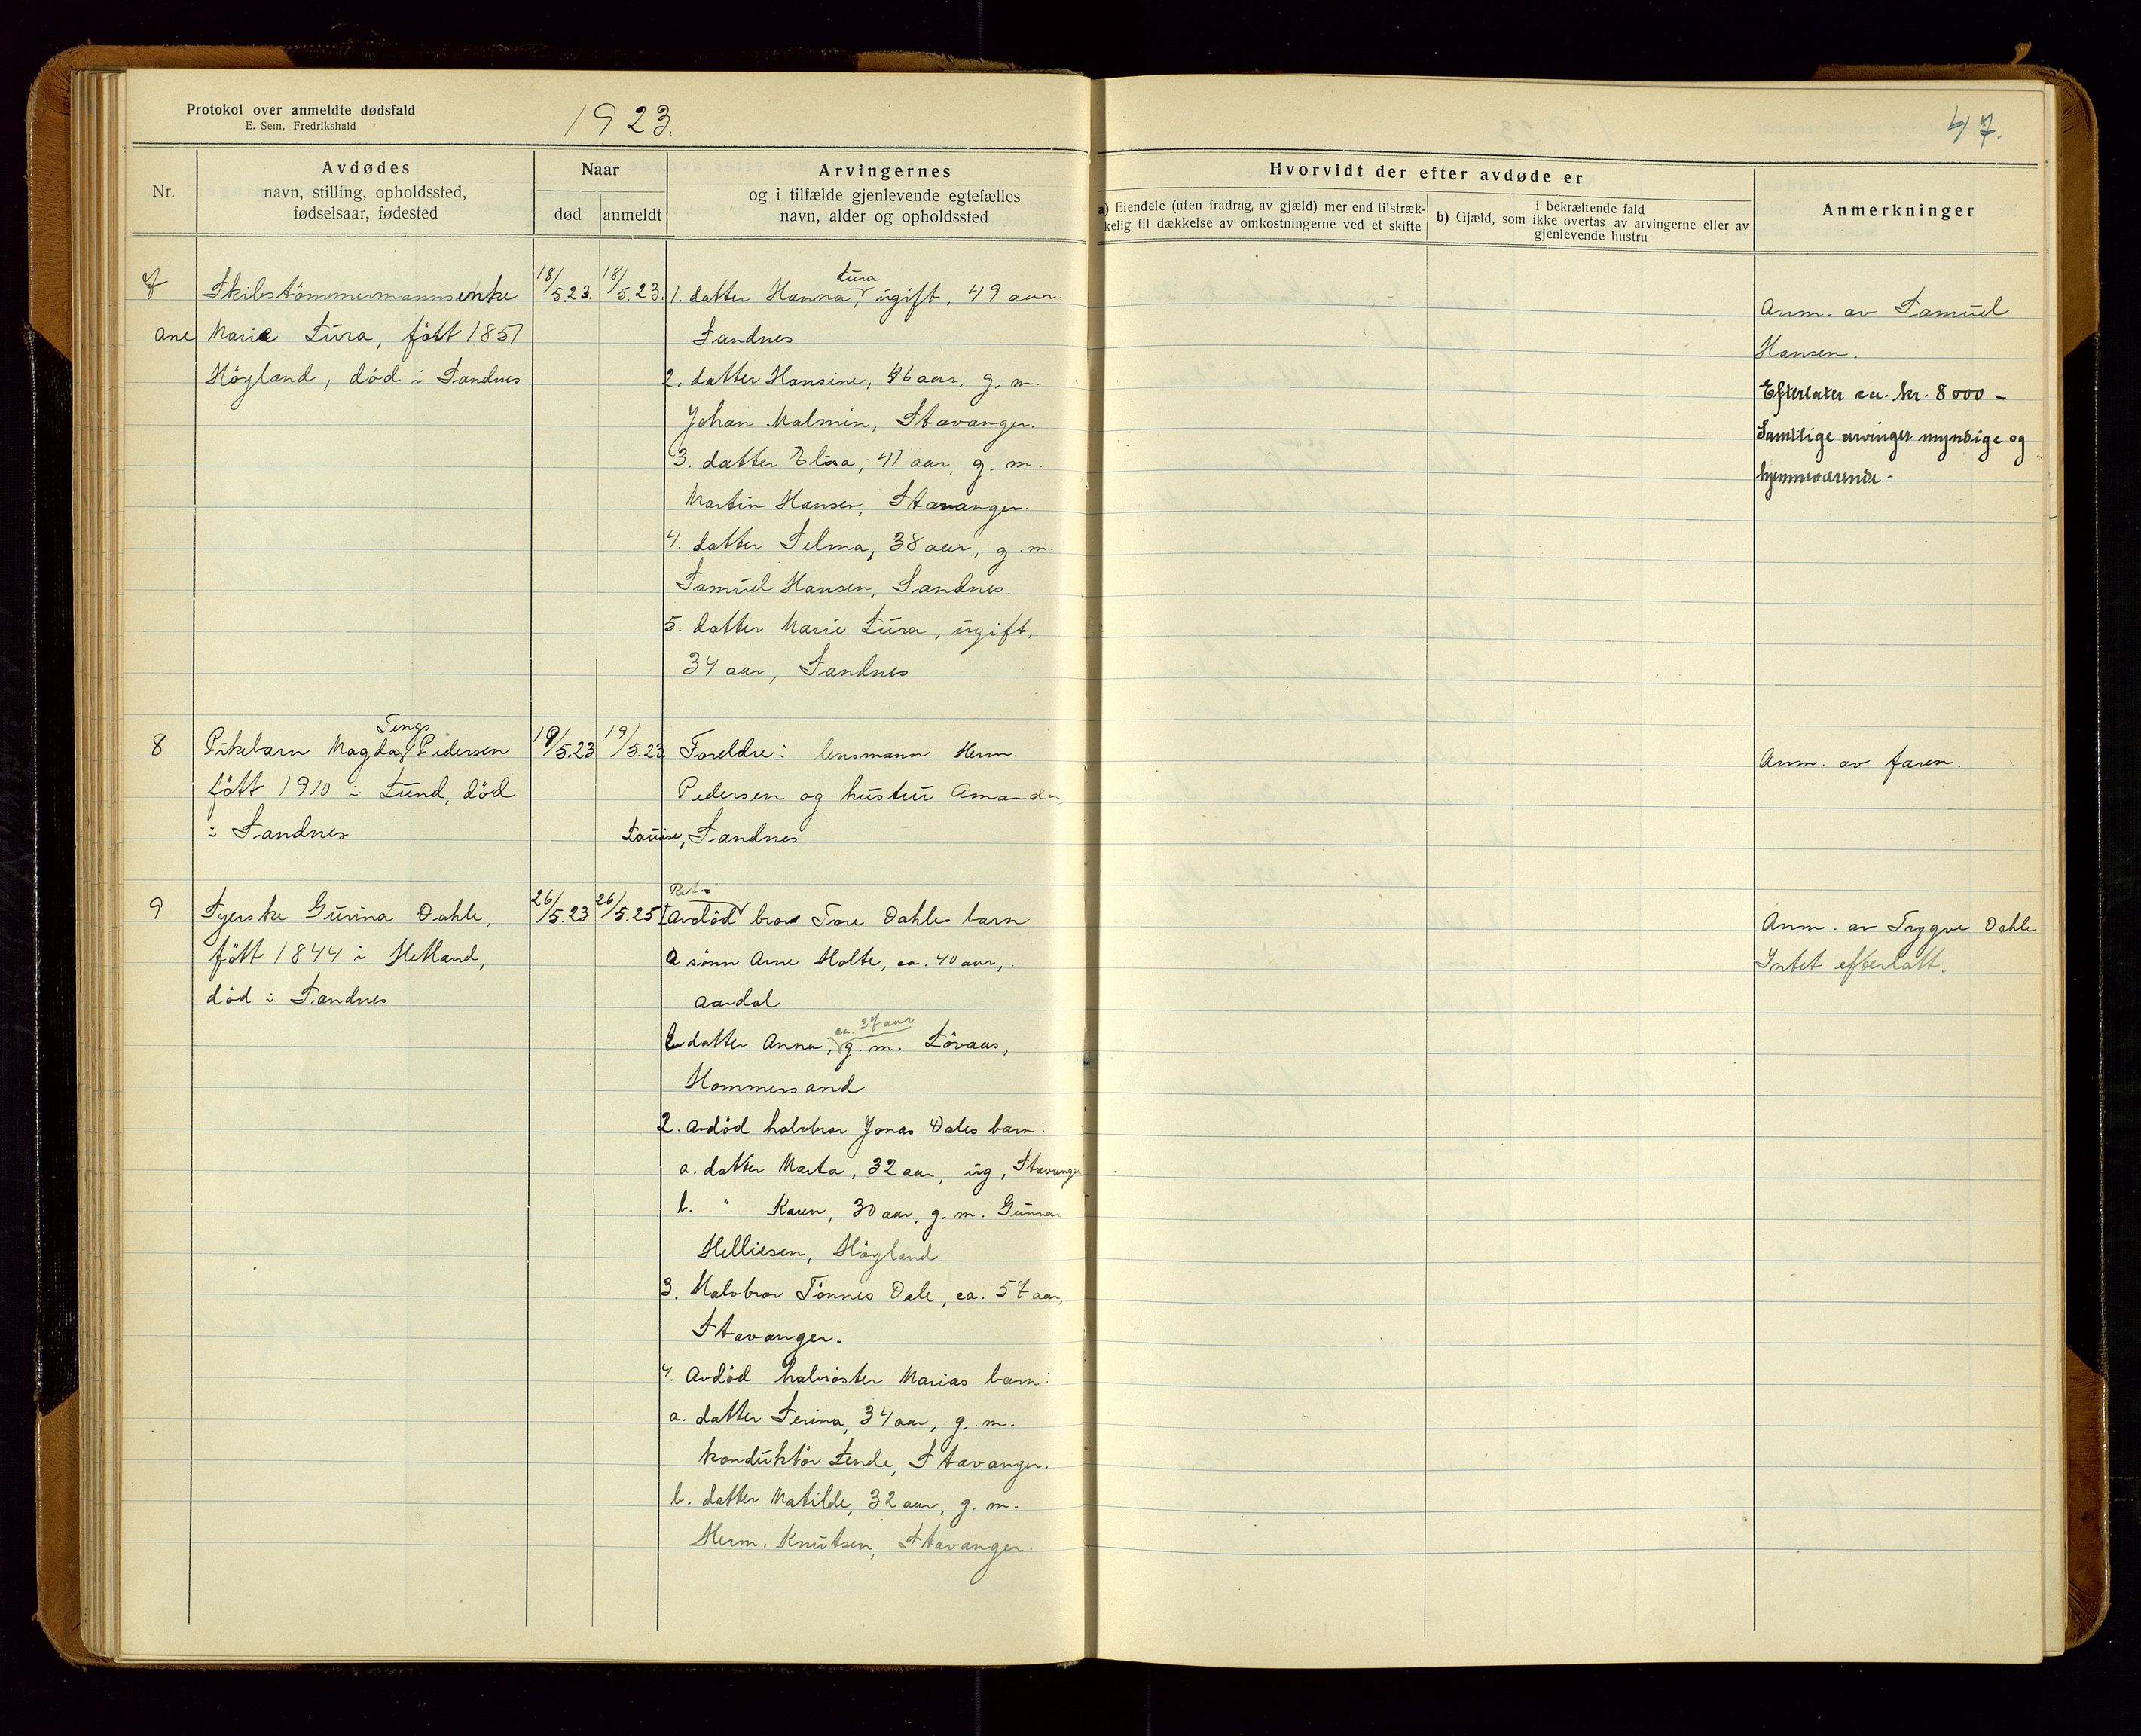 Protokol over anmeldte dødsfald
E. Sem, Fredrikshald
1923.
47.
Nr.
Avdødes
navn, stilling, opholdssted,
fødselsaar, fødested
Naar
død
anmeldt
Arvingernes
og i tilfælde gjenlevende egtefælles
navn, alder og opholdssted
Hvorvidt der efter avdøde er
a) Eiendele (uten fradrag, av gjæld) mer end tilstræk-
kelig til dækkelse av omkostningerne ved et skifte
i bekræftende fald
b) Gjæld, som ikke overtas av arvingerne eller av
gjenlevende hustru
Anmerkninger
7
Skibstömmermannsenke
ane Marie Lura, født 1851
Höyland, död i Sandnes
18/5.23.
18/5.23.
Lura
1. datter Hanna, ugift, 49 aar.
Sandnes
2. datter Hansine, 46 aar, g. m.
Johan Malmin, Stavanger.
3. datter Elisa, 41 aar, g. m.
Martin Hansen, Stavanger.
4. datter Selma, 38 aar, g. m.
Samuel Hansen, Sandnes.
5. datter Marie Lura, ugift,
34 aar, Sandnes
Anm. av Samuel
Hansen.
Efterlater ca. kr. 8000 -
Samtlige arvinger myndige og
hjemmeværende -
8
Tengs
Pikebarn Magda Pedersen
født 1910 i Lund, död
i Sandnes
19/5.23
19/5.23
Foreldre: lensmann Herm.
Pedersen og hustru Amanda
Louise, Sandnes
Anm. av faren.
9
Syerske Gurina Dahle,
født 1844 i Hetland,
död i Sandnes
26/5.23
26/5.25
1 Avdöd bror Tore Dahles barn
a sönn Arne Holte, ca. 40 aar,
Aardal
ca. 37 aar
b datter Anna, g. m. Lövaas,
Hommersand
2. Avdöd halvbror Jonas Dales barn:
a. datter Marta, 32 aar, ug, Stavanger
b. " Karen, 30 aar, g. m. Gunnar
Helliesen, Höyland
3. Halvbror Tönnes Dale, ca. 57 aar,
Stavanger.
4. Avdöd halvsöster Marias barn:
a. datter Serina, 34 aar, g. m.
konduktör Lende, Stavanger.
b. datter Matilde, 32 aar, g. m.
Herm. Knutsen, Stavanger.
Anm. av Trygve Dahle
Intet efterlatt.